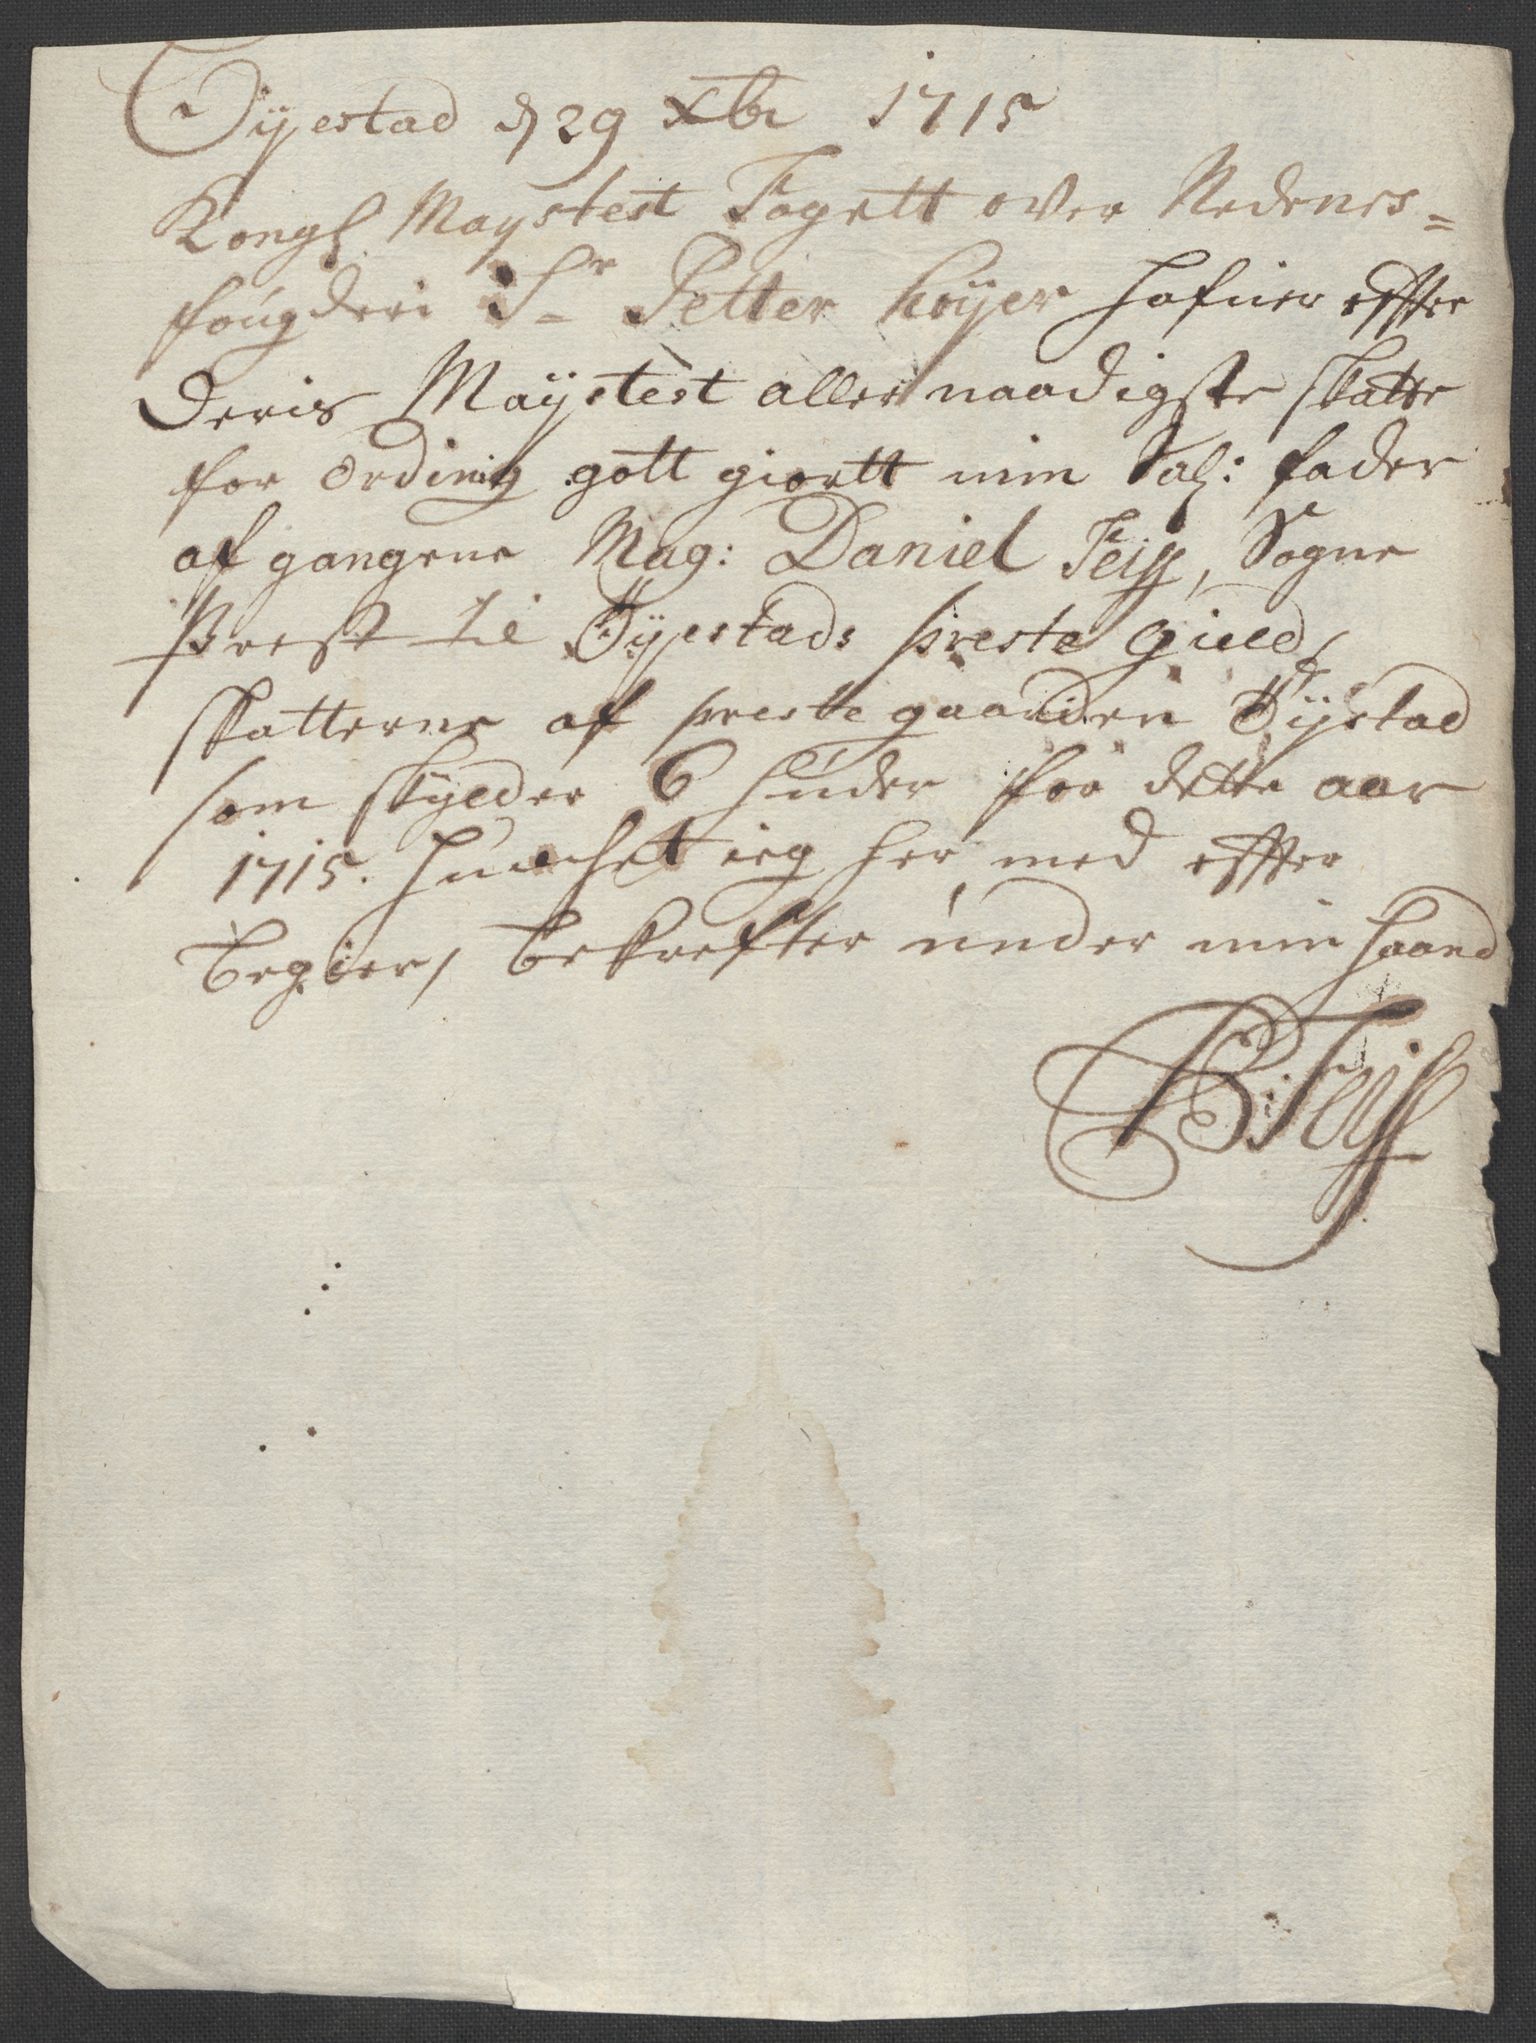 Öÿestad d 29 Xbr 1715
Kongl Mayestest Fogett over Nedenes=
fougderi Sr Petter höÿer hafuer effter
Deris Maÿstest aller naadigste skatte
for ordinig gott giortt min Sal: fader
af gangene Mag: Daniel Teiss, Sogne
Prest til Öÿestads preste gield,
skatterne af preste gaarden Öÿstad
som skylder 6 huder for dette aar
1715. huilchet ieg her med effter
begier, bekrefter under min haand
B: Teiss